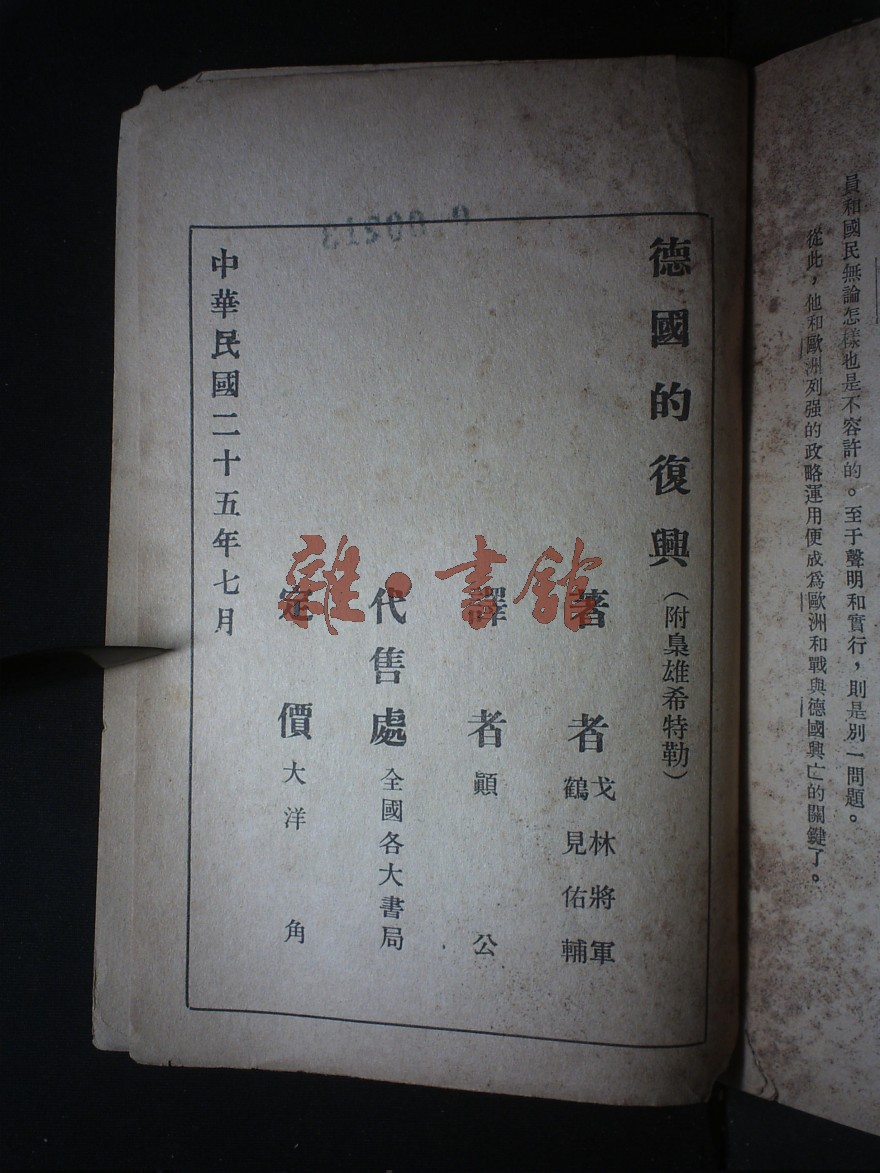 員和國民無論怎樣也是不容許的。至于聲明和實行，則是別一問題。
從此，他和歐洲列强的政略運用便成爲歐洲和戰與德國興亡的關鍵了。
德國的復興（附梟雄希特勒）
著者 戈林將軍
鶴見佑輔
譯者 顚公
代售處 全國各大書局
定價 大洋 角
中華民國二十五年七月
雜·書館